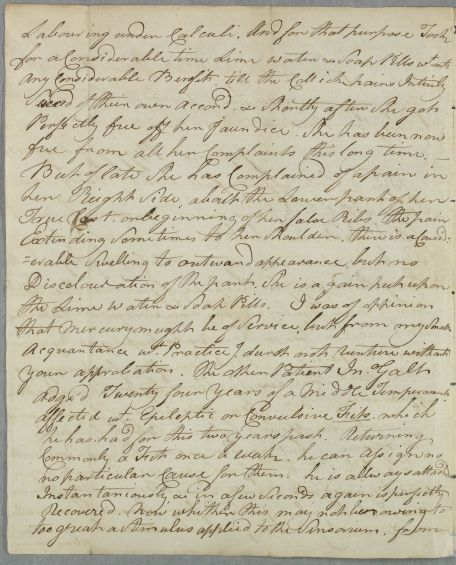 Labouring under Calculi. And for that purpose Took
for a Considerable time Lime water & Soap Pills wtout
Any Considerable Benefit till the Collick pains Intirely
of their own accord. & Shortly after She got
Perfectly free off her Jaundice. She has been now
free from all her Complaints this long time.
But of late She has Complained of a pain in
her Reight Side, about the Lower part of her
True or beginning of her false Ribs. The pain
Extending Sometimes to her Shoulder, there is a Consid-
=erable Swelling to outward appearance but no
Discolouration of the part. She is again put upon
the Lime Water & Soap Pills. I was of oppinion
that Mercury might be of Service but from my Small
Acquantance wt. Practice I durst not venture without
your approbation. The other Patient Jn. Galt
Adged Twenty four years of a Middle Temperament
affected wt. Epileptic or Convulsive Fits. which
he has had for this two years past. Returning
Commonly a Fitt once a weak. he can assign no
no particular Cause for them. he is allways attack'd
Instantaneously, & in a few Seconds again is perfectly
Recovered. Now whether this may not be owing to
too great a Stimulus applied to the Sensorium. from